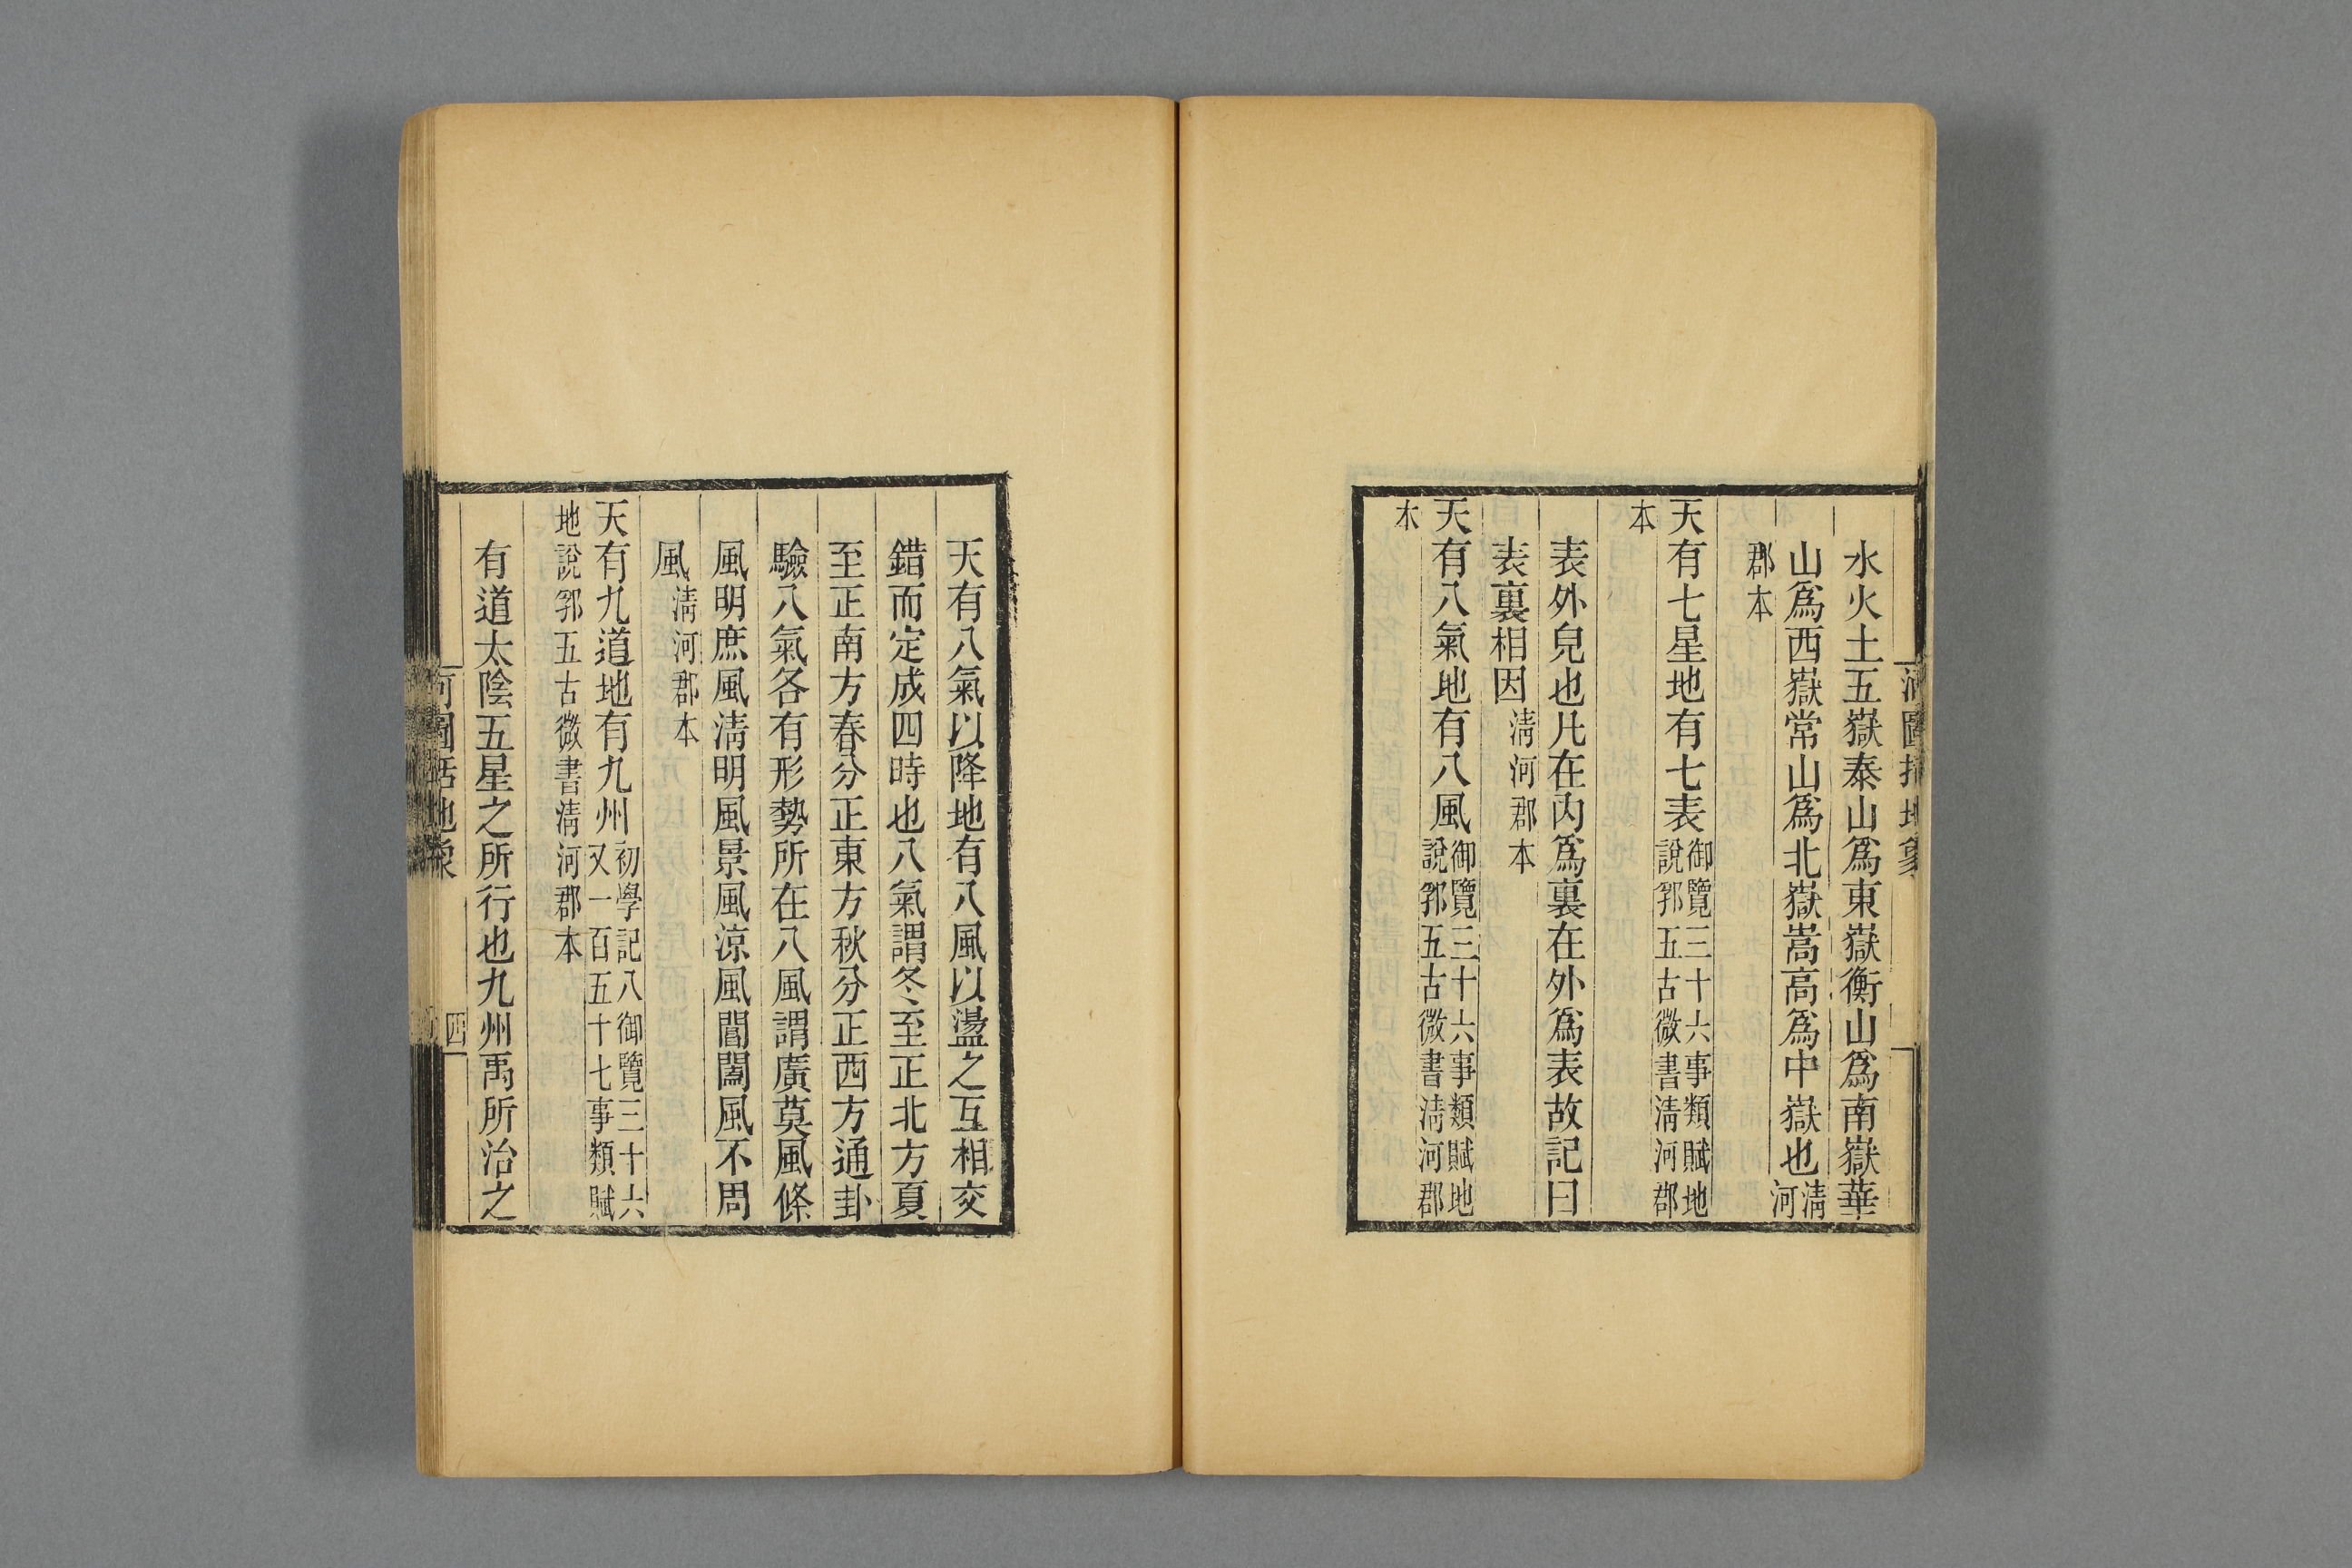 水火土五嶽泰山爲東嶽衡山爲南嶽華
山爲西嶽常山爲北嶽嵩高爲中嶽也淸河
郡本
天有七星地有七表御覽三十六事類賦地說郛五古微書淸河郡
本
表外皃也凡在內爲裏在外爲表故記曰
表裏相因淸河郡本
天有八氣地有八風御覽三十六事類賦地說郛五古微書淸河郡
本
天有八氣以降地有八風以盪之互相交
錯而定成四時也八氣謂冬至正北方夏
至正南方春分正東方秋分正西方通卦
驗八氣各有形勢所在八風謂廣莫風條
風明庶風淸明風景風涼風閶闔風不周
風淸河郡本
天有九道地有九州初學記八御覽三十六又一百五十七事類賦
地說郛五古微書淸河郡本
有道太陰五星之所行也九州禹所治之
河圖括地象
四